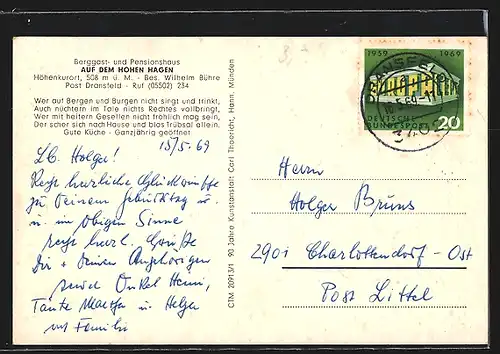 Berggast- und Pensionshaus
AUF DEM HOHEN HAGEN
Höhenkurort, 508 m ü. M. - Bes. Wilhelm Bühre
Post Dransfeld - Ruf (05502) 234
Wer auf Bergen und Burgen nicht singt und trinkt,
Auch nüchtern im Tale nichts Rechtes vollbringt,
Wer mit heitern Gesellen nicht fröhlich mag sein,
Der scher sich nach Hause und blas Trübsal allein.
Gute Küche - Ganzjährig geöffnet
15/5. 69
Lb. Holga!
Recht herzliche Glückwünsche
zu Deinem Geburtstag u.
u. im obigen Sinne
recht herzl. Grüße
Dir + Deinen Angehörigen
Onkel
Tante u. Helga
Familie
CTM 20913/1 90 Jahre Kunstanstalt Carl Thoericht, Hann. Münden
1959 1969
DEUTSCHE
BUNDESPOST 20
Herrn
Holger Bruns
2901 Charlottendorf-Ost
Post Littel